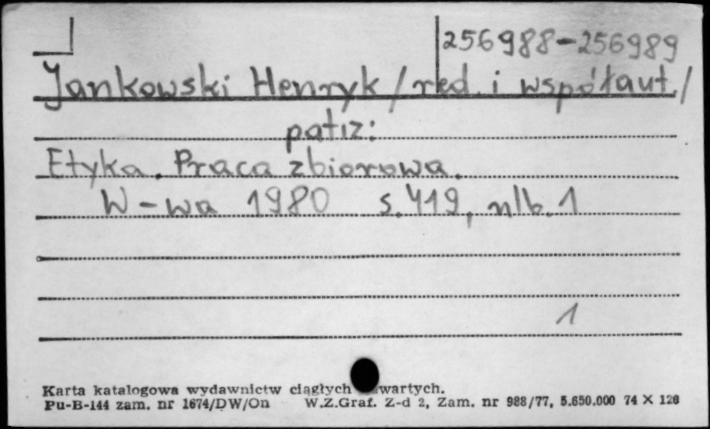 256988-256989
Jankowski Henryk /red. i współaut./
patrz:
Etyka. Praca zbiorowa.
W-wa 1980 s. 419, nlb. 1
1
Karta katalogowa wydawnictw ciągłych wartych.
Pu-B-144 zam. nr 1674/DW/On W.Z.Graf. Z-d 2, Zam. nr 988/77, 5.650.000 74 X 126